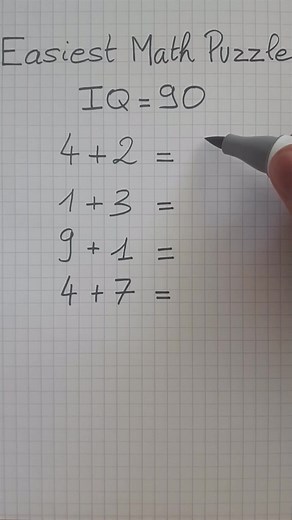 Easiest Math Puzzle
IQ = 90
4 + 2 =
1 + 3 =
9 + 1 =
4 + 7 =